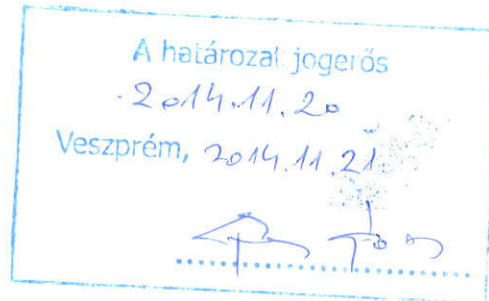 A határozat jogerős
2014.11.20
Veszprém, 2014.11.21.